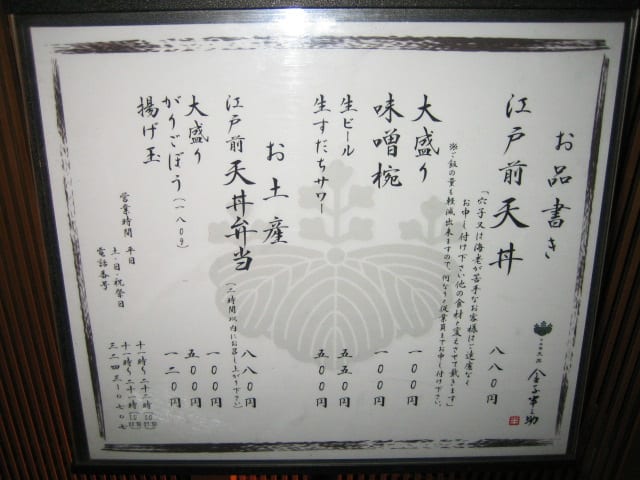 お品書き
金子半之助
江戸前天丼 八八〇円
「穴子又は海老が苦手なお客様はご遠慮なく
お申し付け下さい他の食材に変えさせて戴きます」
※ご飯の量も軽減出来ますので、何なりと従業員までお申し付け下さい。
大盛り 一〇〇円
味噌椀 一〇〇円
生ビール 五五〇円
生すだちサワー 五〇〇円
お土産
江戸前天丼弁当(二時間以内にお召し上がり下さい) 八八〇円
大盛り 一〇〇円
がりごぼう(一八〇g) 五〇〇円
揚げ玉 一二〇円
営業時間 平日 十一時〜二十二時
土・日・祝祭日 十一時〜二十一時
電話番号 三二四三-〇七〇七